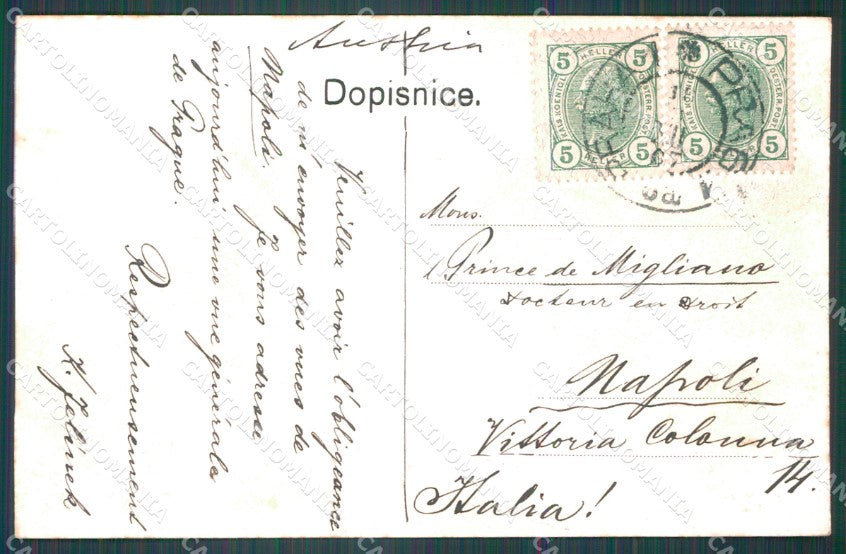 Austria
Dopisnice.
Veuillez avoir l'obligeance
de m'envoyer des vues de
Napoli. Je vous adresse
aujourd'hui une vue générale
de Prague.
Respectueusement
K. Jelínek
5 HELLER 5
KAIS. KOENIGL. OESTERR. POST
5 HELLER 5
5 HELLER 5
KAIS. KOENIGL. OESTERR. POST
5 HELLER 5
PRAG
PRAHA
Mons.
Prince de Migliano
Docteur en droit
Napoli
Vittoria Colonna
14.
Italia!
CARTOLINOMANIA